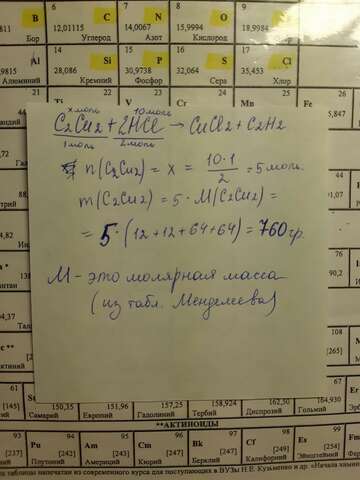 B C N O F
Бор 12,01115 14,0067 15,9994 18,9984
Углерод Азот Кислород
14 15 16 17
Si P S Cl
28,086 30,9738 32,064 35,453
Алюминий Кремний Фосфор Сера Хлор
x моль 10 моль
C2Cu2 + 2HCl → CuCl2 + C2H2
1 моль 2 моль
n(C2Cu2) = x = 10·1/2 = 5 моль.
m(C2Cu2) = 5 · M(C2Cu2) =
= 5·(12+12+64+64) = 760 гр.
M - это молярная масса
(из табл. Менделеева)
150,35 151,96 157,25 158,924 162,50 164,930
Самарий Европий Гадолиний Тербий Диспрозий
**АКТИНОИДЫ
93 94 95 96 97 98 99
Pu Am Cm Bk Cf Es
[237] [242] [243] [247] [247] [249] [254]
Плутоний Америций Кюрий Берклий Калифорний Эйнштейний
таблицы напечатан из современного курса для поступающих в ВУЗы Н.Е. Кузьменко и др. «Начала хими